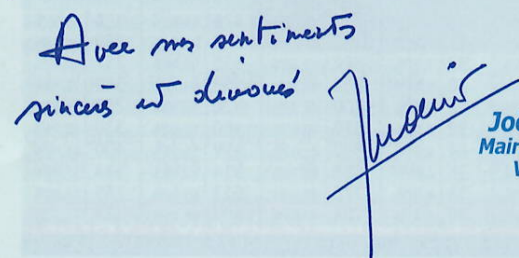 Avec mes sentiments
sincères et dévoués
Jo
Mair
V